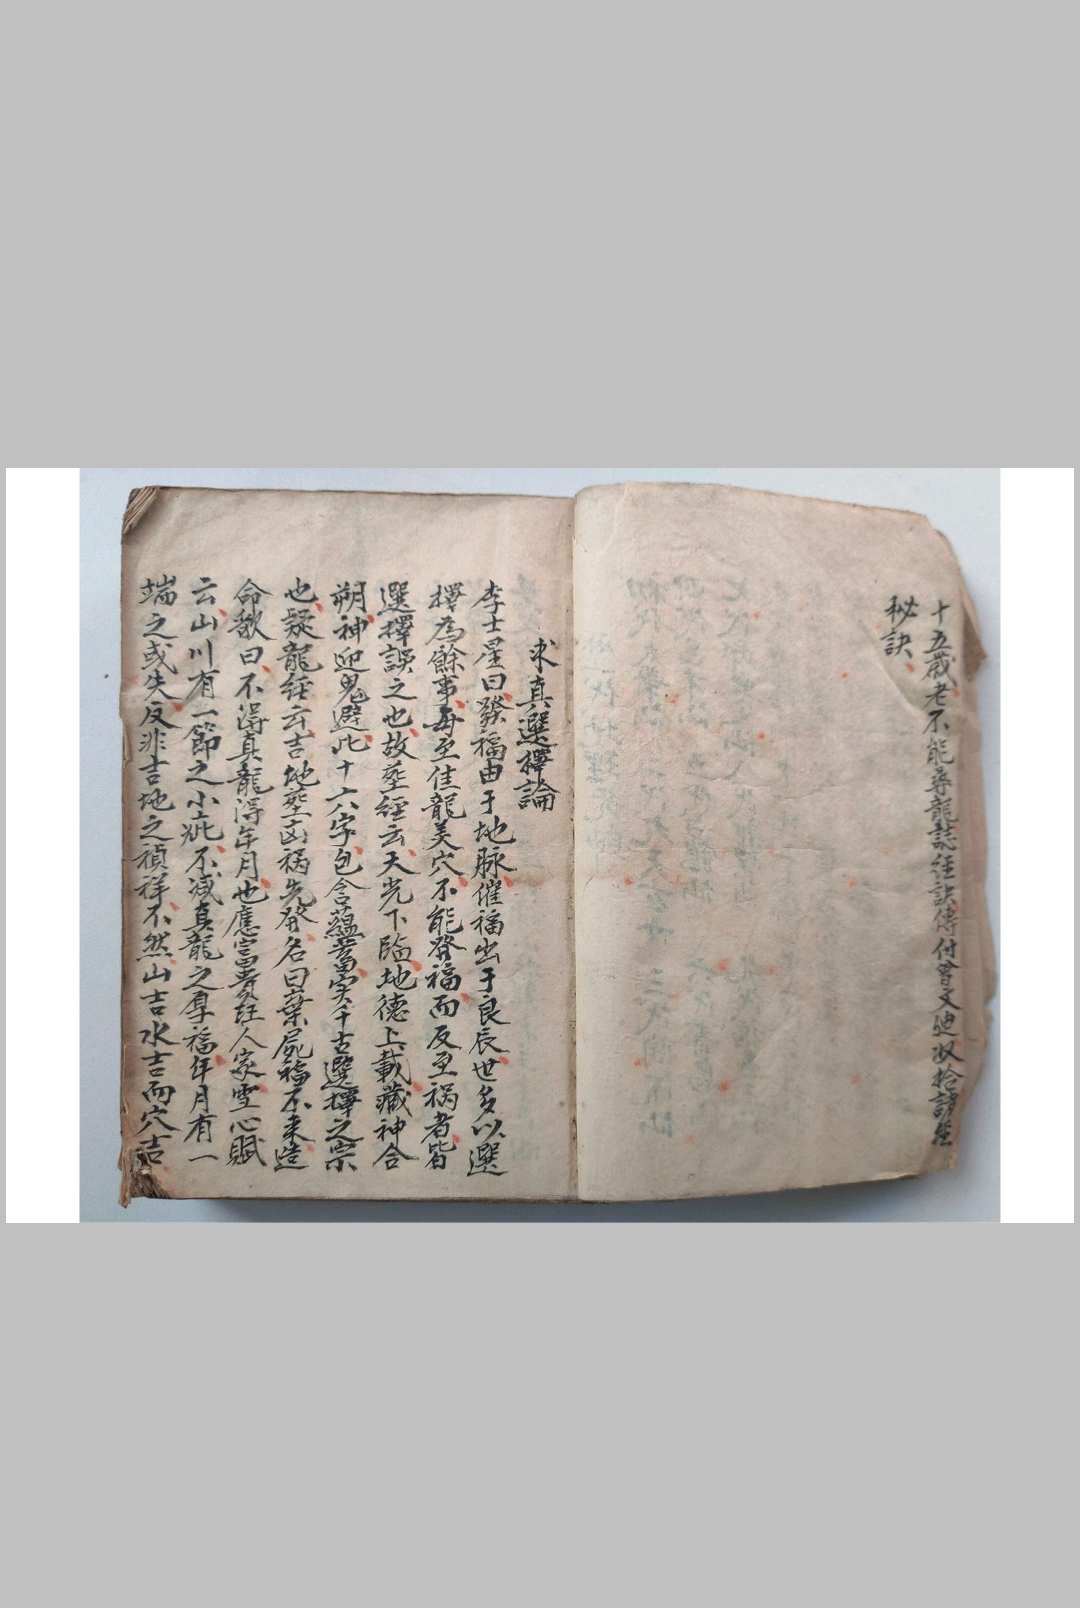 十五歲老不能尋龍誌经訣傳付曾文迪收拾諸經
秘訣
求真選擇論
李士星曰發福由于地脉催福出于良辰世多以選
擇為餘事每至佳龍美穴不能發福而反至祸者皆
選擇誤之也故塟經云天光下臨地德上載藏神合
朔神迎鬼避此十六字包含蘊蓄實千古選擇之宗
也疑龍经云吉地塟凶祸先發名曰棄屍福不来造
命歌曰不淂真龍淂年月也應富貴旺人家雪心賦
云山川有一節之小疵不减真龍之厚福年月有一
端之或失反非吉地之禎祥不然山吉水吉而穴吉